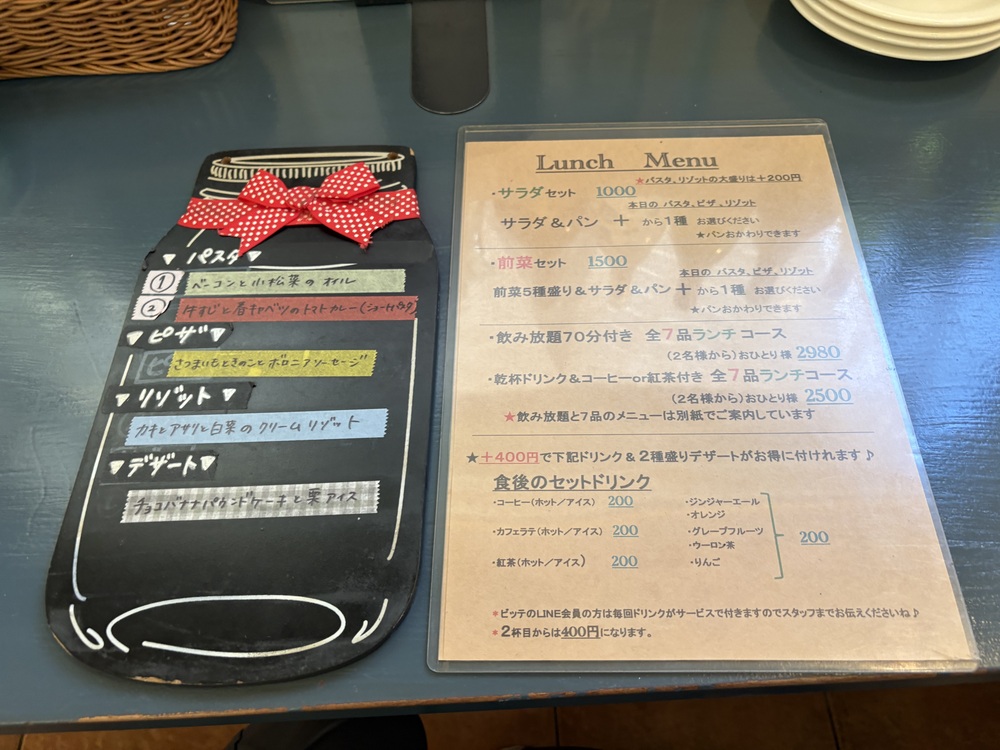 ▼パスタ▼
① ベーコンと小松菜のオイル
② 牛すじと春キャベツのトマトカレー(ショートパスタ)
▼ピザ▼
さつまいもときのことボロニアソーセージ
▼リゾット▼
カキとアサリと白菜のクリームリゾット
▼デザート▼
チョコバナナパウンドケーキと栗アイス
Lunch Menu
★パスタ、リゾットの大盛りは+200円
・サラダセット 1000
本日の パスタ、ピザ、リゾット
サラダ&パン + から1種 お選びください
★パンおかわりできます
・前菜セット 1500
本日の パスタ、ピザ、リゾット
前菜5種盛り&サラダ&パン + から1種 お選びください
★パンおかわりできます
・飲み放題70分付き 全7品ランチコース
(2名様から)おひとり様 2980
・乾杯ドリンク&コーヒーor紅茶付き 全7品ランチコース
(2名様から)おひとり様 2500
★飲み放題と7品のメニューは別紙でご案内しています
★+400円で下記ドリンク&2種盛りデザートがお得に付けれます♪
食後のセットドリンク
・コーヒー(ホット/アイス) 200
・カフェラテ(ホット/アイス) 200
・紅茶(ホット/アイス) 200
・ジンジャーエール
・オレンジ
・グレープフルーツ
・ウーロン茶
・りんご
200
*ピッテのLINE会員の方は毎回ドリンクがサービスで付きますのでスタッフまでお伝えくださいね♪
*2杯目からは400円になります。